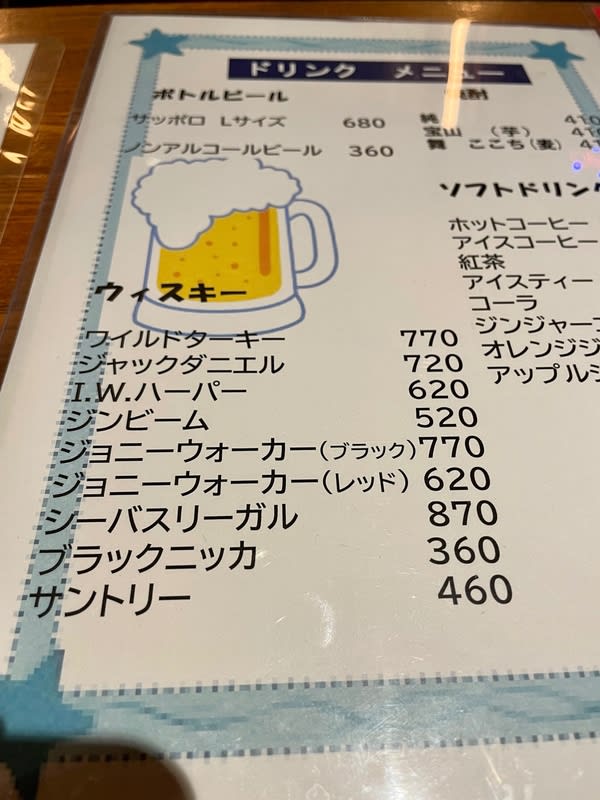 ドリンク メニュー
ボトルビール
サッポロ Lサイズ 680
ノンアルコールビール 360
焼酎
純 410
宝山 (芋) 410
舞 ここち(麦) 41
ソフトドリンク
ホットコーヒー
アイスコーヒー
紅茶
アイスティー
コーラ
ジンジャー
オレンジジ
アップルジ
ウィスキー
ワイルドターキー 770
ジャックダニエル 720
I.W.ハーパー 620
ジンビーム 520
ジョニーウォーカー(ブラック) 770
ジョニーウォーカー(レッド) 620
シーバスリーガル 870
ブラックニッカ 360
サントリー 460